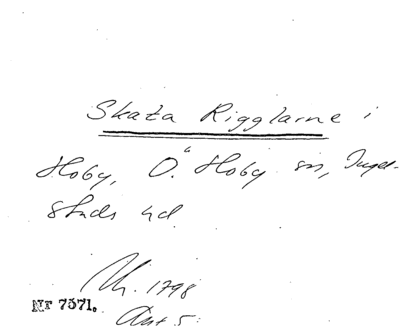 Skata Rigglarne i
Hoby, Ö. Hoby sn, Ingel-
stads hd.
Uh. 1798
Nr 7571.
Ant 5.